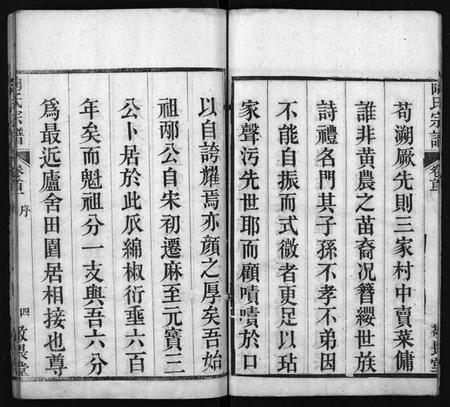 苟溯厥先則三家村中賣菜傭
誰非黃農之苗裔况簪纓世族
詩禮名門其子孫不孝不弟因
不能自振而式微者更足以玷
家聲污先世耶而顧嘖嘖於口
以自誇耀焉亦顏之厚矣吾始
祖邴公自宋初遷麻至元寳三
公卜居於此瓜綿椒衍垂六百
年矣而魁祖分一支與吾六分
為最近廬舍田園居相接也尊
氏宗譜
卷首
序
四